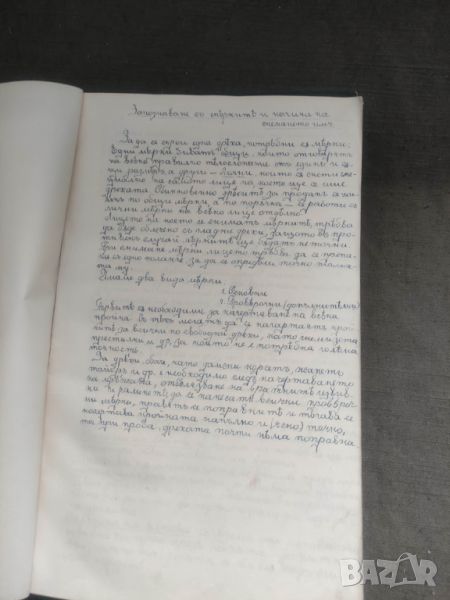 Запознаване съ мѣркитѣ и начина на
снемането имъ
За да се скрои една дреха, потрѣбни сѫ мѣрки.
Едни мѣрки биватъ общи, които отговарятъ
на всѣко правилно тѣлосложение отъ единъ и сѫ-
щи размѣръ, а други – лични, които се снематъ спе-
циално на самото лице на което ще се шие
дрехата. Обикновенно дрехитѣ за проданъ се шия-
по общи мѣрки, а по порѫчка – се работи съ
лични мѣрки на всѣко лице отдѣлно.
Лицето на което се снематъ мѣркитѣ, трѣбва
да бѫде облѣчено съ гладни дрехи, защото въ про-
тивенъ случай мѣркитѣ ще бѫдатъ не точни.
При снемане мѣрки лицето трѣбва да се
съ едно коланче за да се опредѣли точно талия-
та му.
Имаме два вида мѣрки:
1. Основни
2. Провѣрочни (допълнителни)
Първитѣ сѫ необходими за начертаване на всѣка
кройка. Съ тѣхъ могатъ да се начертаятъ крой-
китѣ за всички по свободни дрехи, като кимона
престилки и др. за които не е потрѣбна голѣма
точность.
За дрехи, които
тайоръ и др. е необходимо следъ начертаването
на мрѣжата, отбелязване на
да се нанесатъ всички провѣроч-
ни мѣрки, правятъ се поправкитѣ и тогава се
кройката напълно и (вече) точно,
та при проба, дрехата почти нѣма поправка.
BAZAR